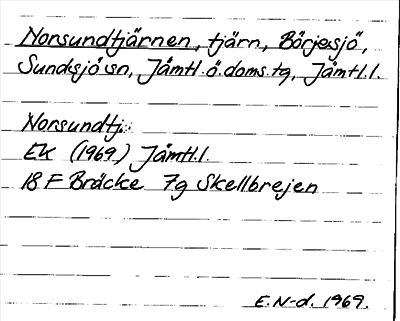 Norsundtjärnen, tjärn, Börjesjö,
Sundsjö sn, Jämtl.ö.doms.tg, Jämtl.l.
Norsundtj.
EK (1969) Jämtl.l.
18 F Bräcke 7g Skellbrejen
E.N-d. 1969.